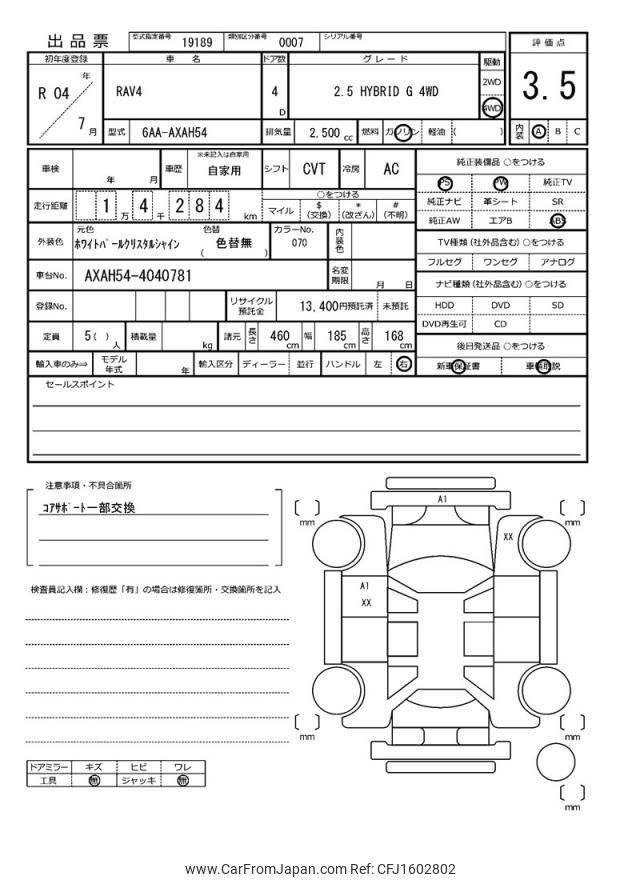 出品票 型式指定番号 19189 類別区分番号 0007 シリアル番号
初年度登録 車名 ドア数 グレード 駆動 評価点
R 04 年 7 月 RAV4 4 D 2.5 HYBRID G 4WD 2WD 4WD 3.5
型式 6AA-AXAH54 排気量 2,500 cc 燃料 ガソリン 軽油 ( ) 内装 A B C
車検 年 月 車歴 ※未記入は自家用 自家用 シフト CVT 冷房 AC
走行距離 1 万 4 千 2 8 4 km ○をつける
マイル $ (交換) * (改ざん) # (不明)
外装色 元色 ホワイトパールクリスタルシャイン 色替 ( 色替無 ) カラーNo. 070 内装色
車台No. AXAH54-4040781 名変期限 月 日
登録No. リサイクル預託金 13,400円預託済 未預託
定員 5 ( ) 人 積載量 kg 諸元 長さ 460 cm 幅 185 cm 高さ 168 cm
輸入車のみ⇒ モデル年式 年 輸入区分 ディーラー 並行 ハンドル 左 右
純正装備品 ○をつける
PS PW 純正TV
純正ナビ 革シート SR
純正AW エアB ABS
TV種類 (社外品含む) ○をつける
フルセグ ワンセグ アナログ
ナビ種類 (社外品含む) ○をつける
HDD DVD SD
DVD再生可 CD
後日発送品 ○をつける
新車保証書 車輌取説
セールスポイント
注意事項・不具合箇所
コアサポート一部交換
検査員記入欄:修復歴「有」の場合は修復箇所・交換箇所を記入
ドアミラー キズ ヒビ ワレ
工具 無 ジャッキ 無
A1
mm mm
XX
A1
XX
mm mm
mm
www.CarFromJapan.com Ref: CFJ1602802